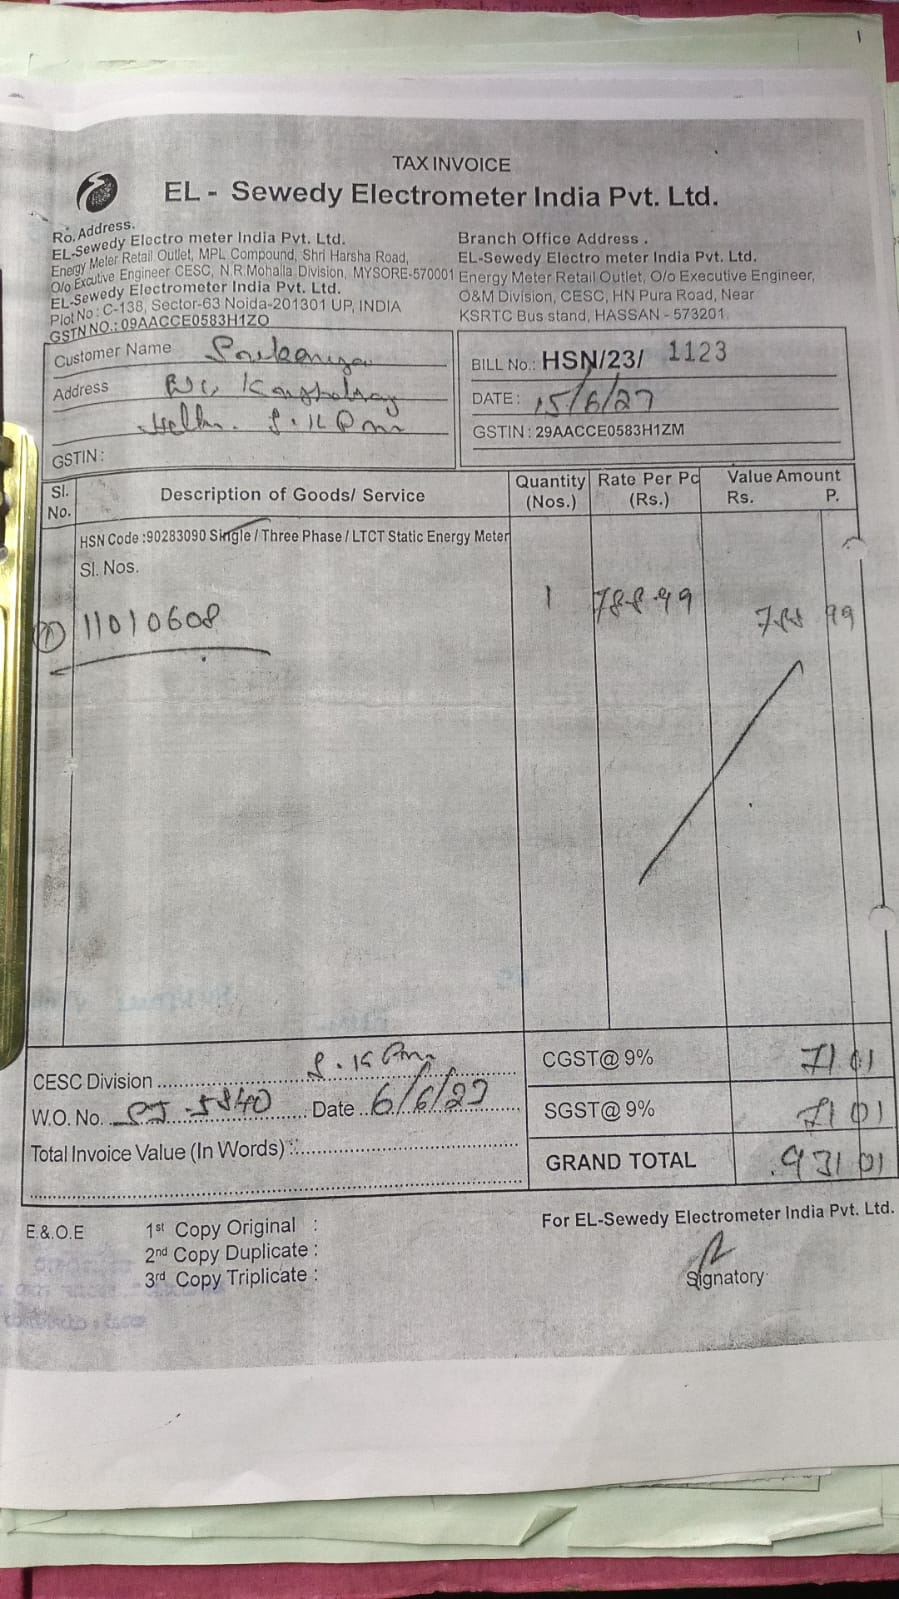 TAX INVOICE
EL - Sewedy Electrometer India Pvt. Ltd.
Ro. Address.
EL-Sewedy Electro meter India Pvt. Ltd.
Energy Meter Retail Outlet, MPL Compound, Shri Harsha Road,
O/o Excutive Engineer CESC, N.R.Mohalla Division, MYSORE-570001
EL-Sewedy Electrometer India Pvt. Ltd.
Plot No : C-138, Sector-63 Noida-201301 UP, INDIA
GSTN NO.: 09AACCE0583H1ZO
Branch Office Address .
EL-Sewedy Electro meter India Pvt. Ltd.
Energy Meter Retail Outlet, O/o Executive Engineer,
O&M Division, CESC, HN Pura Road, Near
KSRTC Bus stand, HASSAN - 573201
Customer Name
Address
GSTIN :
BILL No.: HSN/23/ 1123
DATE : 15/6/23
GSTIN : 29AACCE0583H1ZM
Sl. No. Description of Goods/ Service Quantity (Nos.) Rate Per Pc (Rs.) Value Amount Rs. P.
HSN Code :90283090 Single / Three Phase / LTCT Static Energy Meter
Sl. Nos.
1 788.99 788 99
① 11010608
CESC Division
W.O. No. 5840 Date 6/6/23
Total Invoice Value (In Words) :
CGST@ 9% 71 01
SGST@ 9% 71 01
GRAND TOTAL 931 01
E.&.O.E
1st Copy Original :
2nd Copy Duplicate :
3rd Copy Triplicate :
For EL-Sewedy Electrometer India Pvt. Ltd.
Signatory